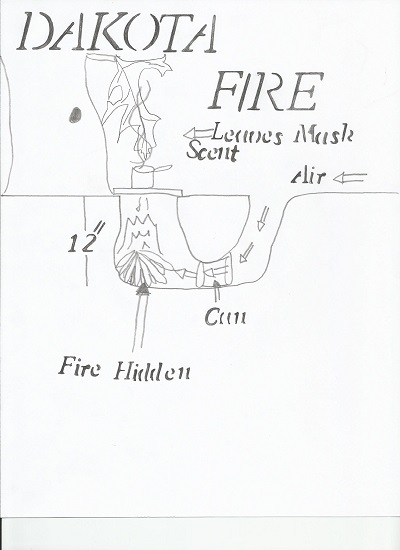 DAKOTA
FIRE
Leaves Mask
Scent
Air
12"
Can
Fire Hidden